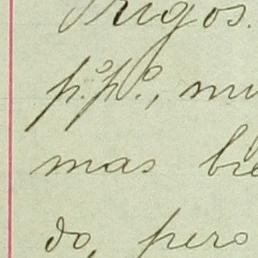 Trigos.
p.º p.º, mu
mas bre
do, pero